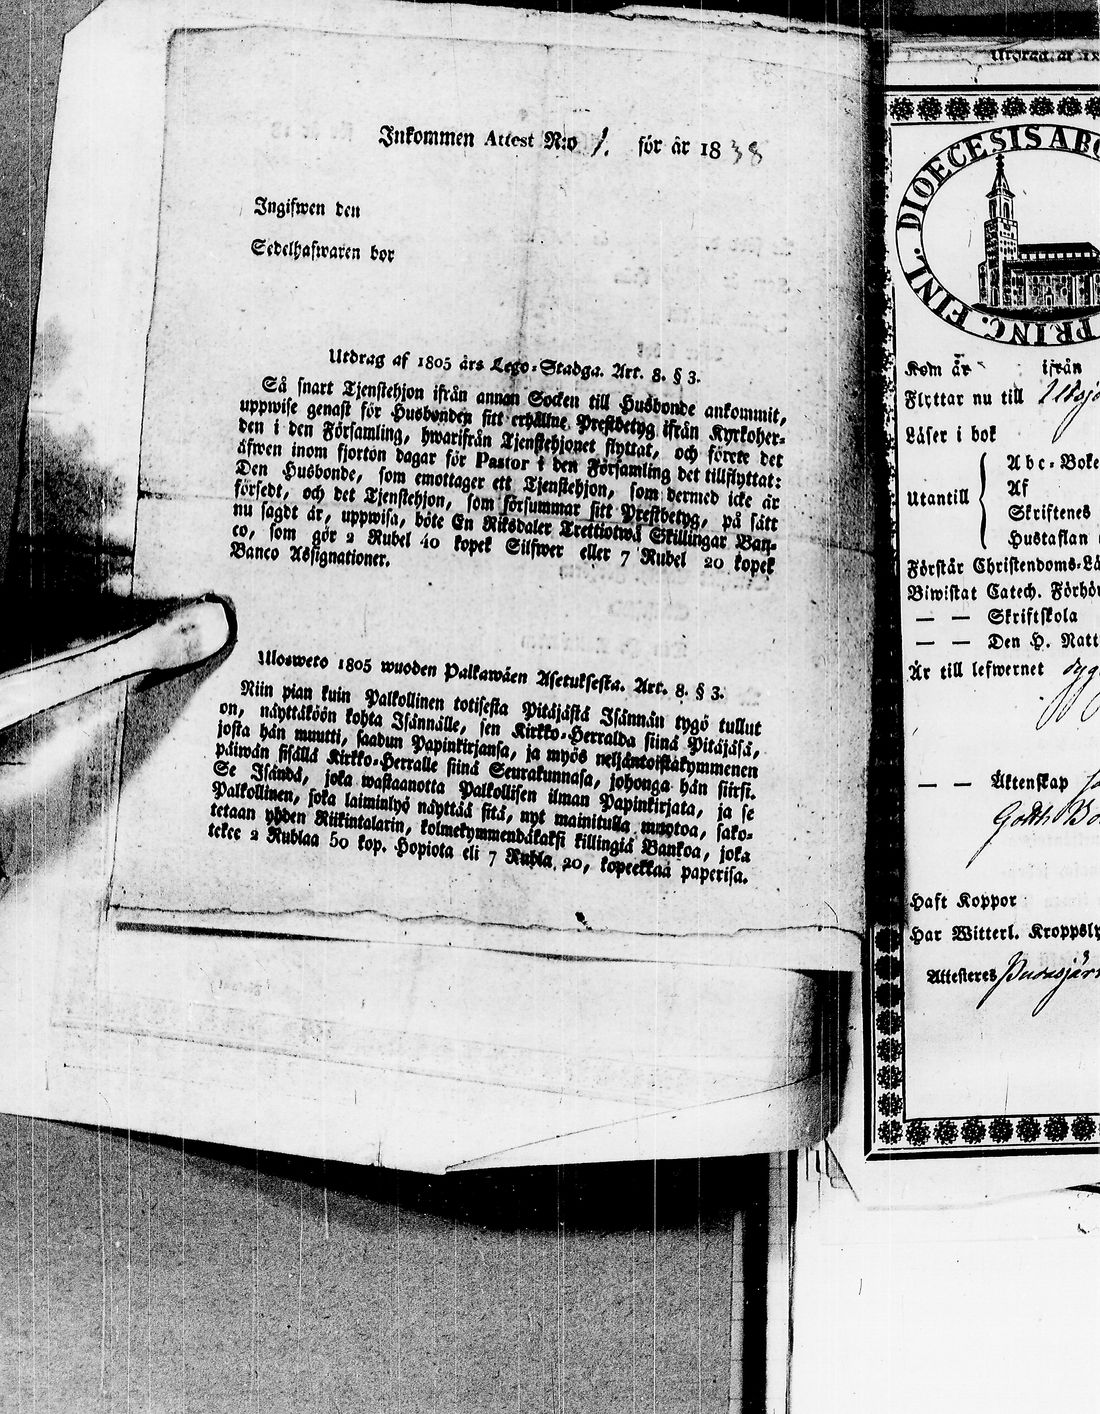 Inkommen Attest N:o 1. för år 1838
Ingifwen den
Sedelhafwaren bor
Utdrag af 1805 års Lego-Stadga. Art. 8. § 3.
Så snart Tjenstehjon ifrån annan Socken till Husbonde ankommit,
uppwise genast för Husbonden sitt erhållne Prestbetyg ifrån Kyrkoher-
den i den Församling, hwarifrån Tjenstehjonet flyttat, och förete det
äfwen inom fjorton dagar för Pastor i den Församling det tillflyttat:
Den Husbonde, som emottager ett Tjenstehjon, som dermed icke är
försedt, och det Tjenstehjon, som försummar sitt Prestbetyg, på sätt
nu sagdt är, uppwisa, böte En Riksdaler Trettiotwå Skillingar Ban-
co, som gör 2 Rubel 40 kopek Silfwer eller 7 Rubel 20 kopek
Banco Assignationer.
Ulosweto 1805 wuoden Palkawäen Asetuksesta. Art. 8. § 3.
Niin pian kuin Palkollinen totisesta Pitäjästä Isännän tygö tullut
on, näyttäköön kohta Isännälle, sen Kirkko-Herralda siinä Pitäjäsä,
josta hän muutti, saadun Papinkirjansa, ja myös neljäntoistakymmenen
päiwän sisällä Kirkko-Herralle siinä Seurakunnasa, johonga hän siirsi.
Se Isändä, joka wastaanotta Palkollisen ilman Papinkirjata, ja se
Palkollinen, joka laiminlyö näyttää sitä, nyt mainitulla muotoa, sako-
tetaan yhden Riikintalarin, kolmekymmendäkaksi killingiä Bankoa, joka
tekee 2 Rublaa 50 kop. Hopiota eli 7 Rubla 20, kopeekkaa paperisa.
DIOECESIS ABO
PRINC. FINL.
Kom år ifrån
Flyttar nu till
Läser i bok
Utantill
Abc-Boke
Af
Skriftenes
Hustaflan
Förstår Christendoms-Lä
Biwistat Catech. Förhör
— — Skriftskola
— — Den H. Natt
Är till lefwernet
— — Äktenskap
Haft Koppor
Har Witterl. Kroppsly
Attesteres